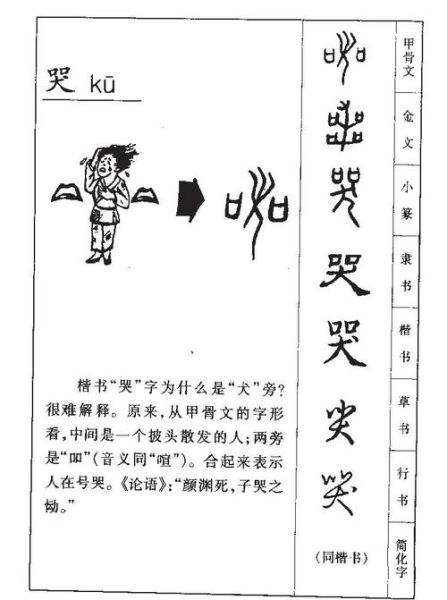 哭 kū
楷书“哭”字为什么是“犬”旁?
很难解释。原来,从甲骨文的字形
看,中间是一个披头散发的人;两旁
是“吅”(音义同“喧”)。合起来表示
人在号哭。《论语》:“颜渊死,子哭之
恸。”
甲骨文
金文
小篆
隶书
哭
楷书
哭
草书
行书
哭
简化字
(同楷书)